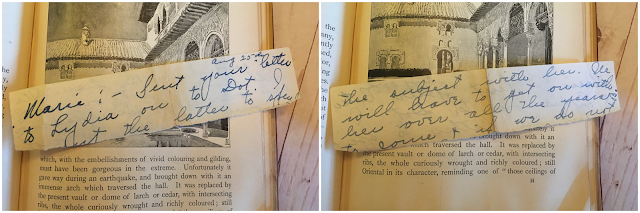 Aug 25th
Marie :- Sent your letter
to Lydia on to Dot. I
out the latter to
the
which, with the embellishments of vivid colouring and gilding,
must have been gorgeous in the extreme. Unfortunately it
gave way during an earthquake, and brought down with it an
immense arch which traversed the hall. It was replaced by
the present vault or dome of larch or cedar, with intersecting
ribs, the whole curiously wrought and richly coloured; still
the subject with her. He
will have to get on with
her over all the years
to come & we do not
it
which traversed the hall. It was replaced by
the present vault or dome of larch or cedar, with intersecting
ribs, the whole curiously wrought and richly coloured; still
Oriental in its character, reminding one of those "those ceilings of
H